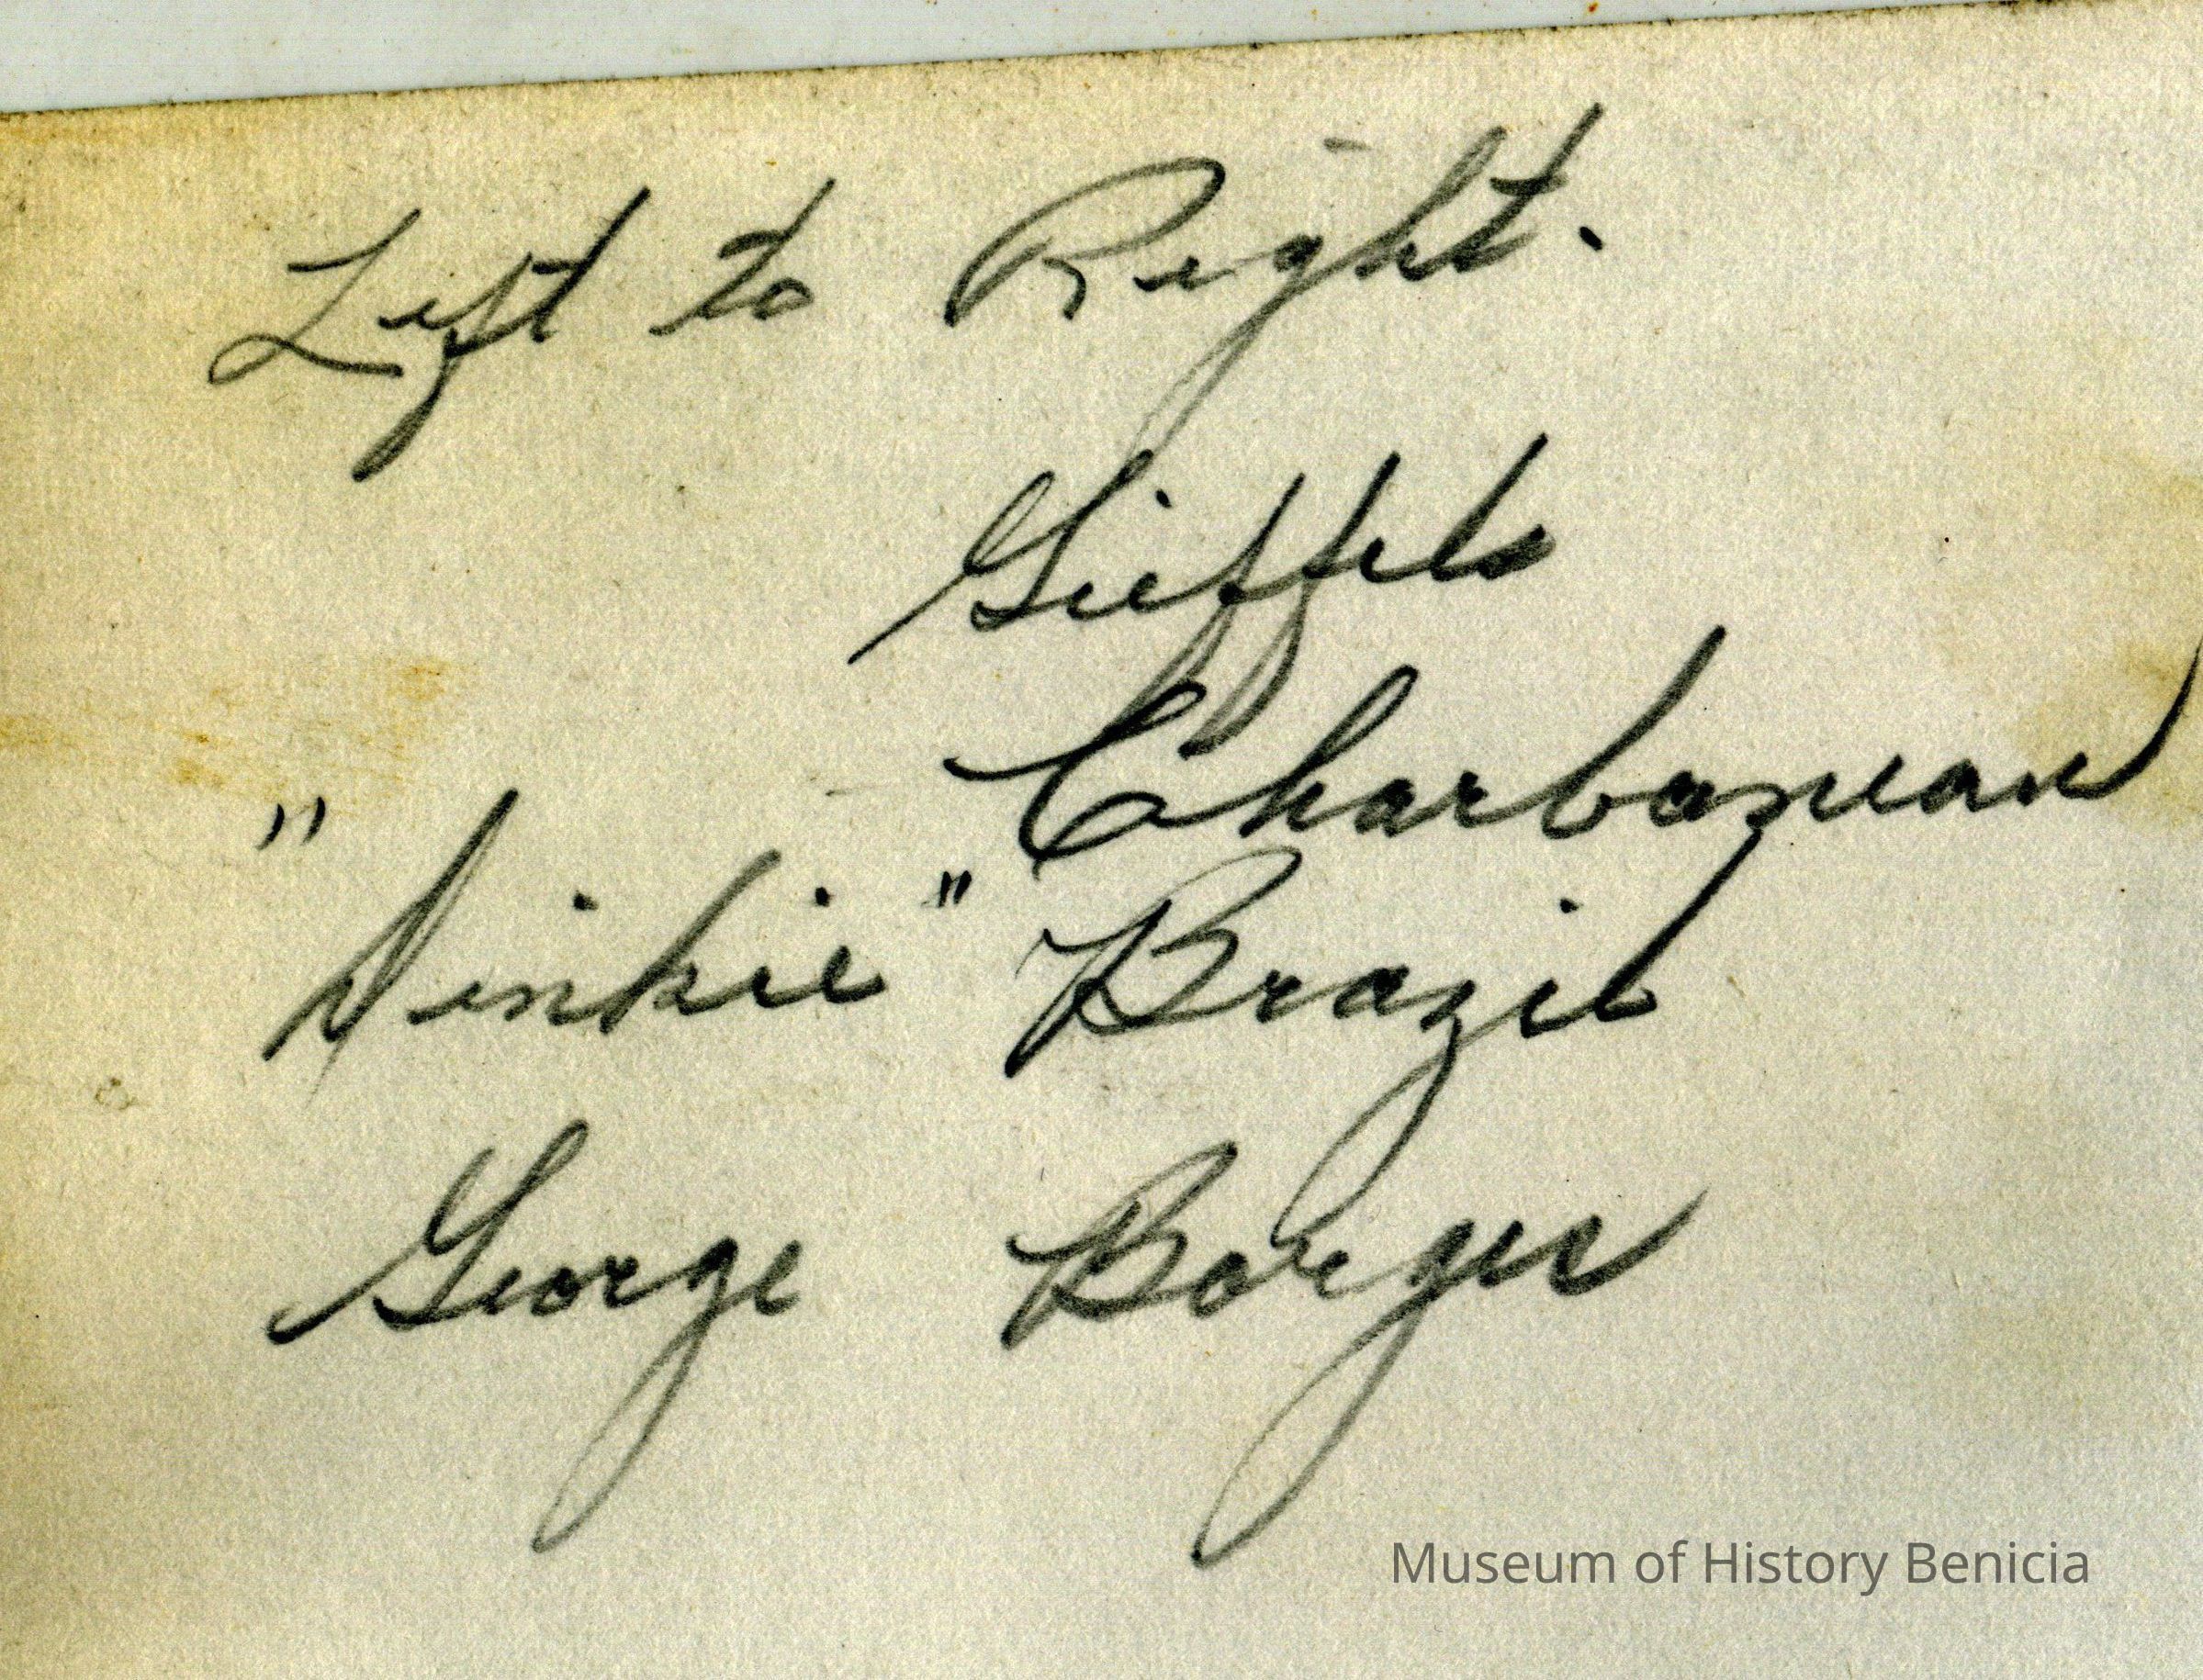 Left to Right.
Gieffels
Charboneau
"Dinkie" Brazil
George Borges
Museum of History Benicia